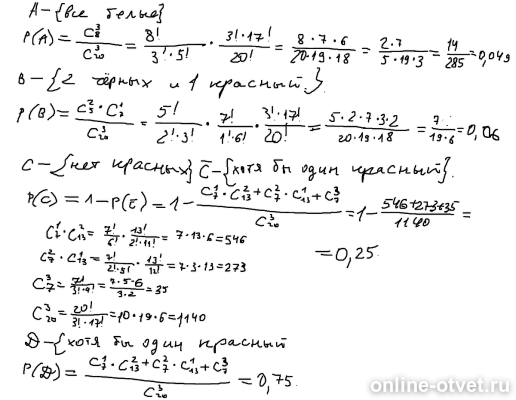 A-{все белые}
P(A) = C_8^3 / C_20^3 = 8! / (3!·5!) · 3!·17! / 20! = 8·7·6 / (20·19·18) = 2·7 / (5·19·3) = 14/285 = 0,049
B-{2 чёрных и 1 красный}.
P(B) = C_5^2·C_7^1 / C_20^3 = 5! / (2!·3!) · 7! / (1!·6!) · 3!·17! / 20! = 5·2·7·3·2 / (20·19·18) = 7 / (19·6) = 0,06
C-{нет красных} C̅-{хотя бы один красный}.
P(C) = 1-P(C̅) = 1- (C_7^1·C_13^2+C_7^2·C_13^1+C_7^3) / C_20^3 = 1- (546+273+35) / 1140 =
= 0,25.
C_7^1·C_13^2 = 7!/6! · 13! / (2!·11!) = 7·13·6=546
C_7^2·C_13^1 = 7! / (2!·5!) · 13!/12! = 7·3·13=273
C_7^3 = 7! / (3!·4!) = 7·5·6 / (3·2) = 35
C_20^3 = 20! / (3!·17!) = 10·19·6=1140
D-{хотя бы один красный
P(D) = (C_7^1·C_13^2+C_7^2·C_13^1+C_7^3) / C_20^3 = 0,75.
online-otvet.ru